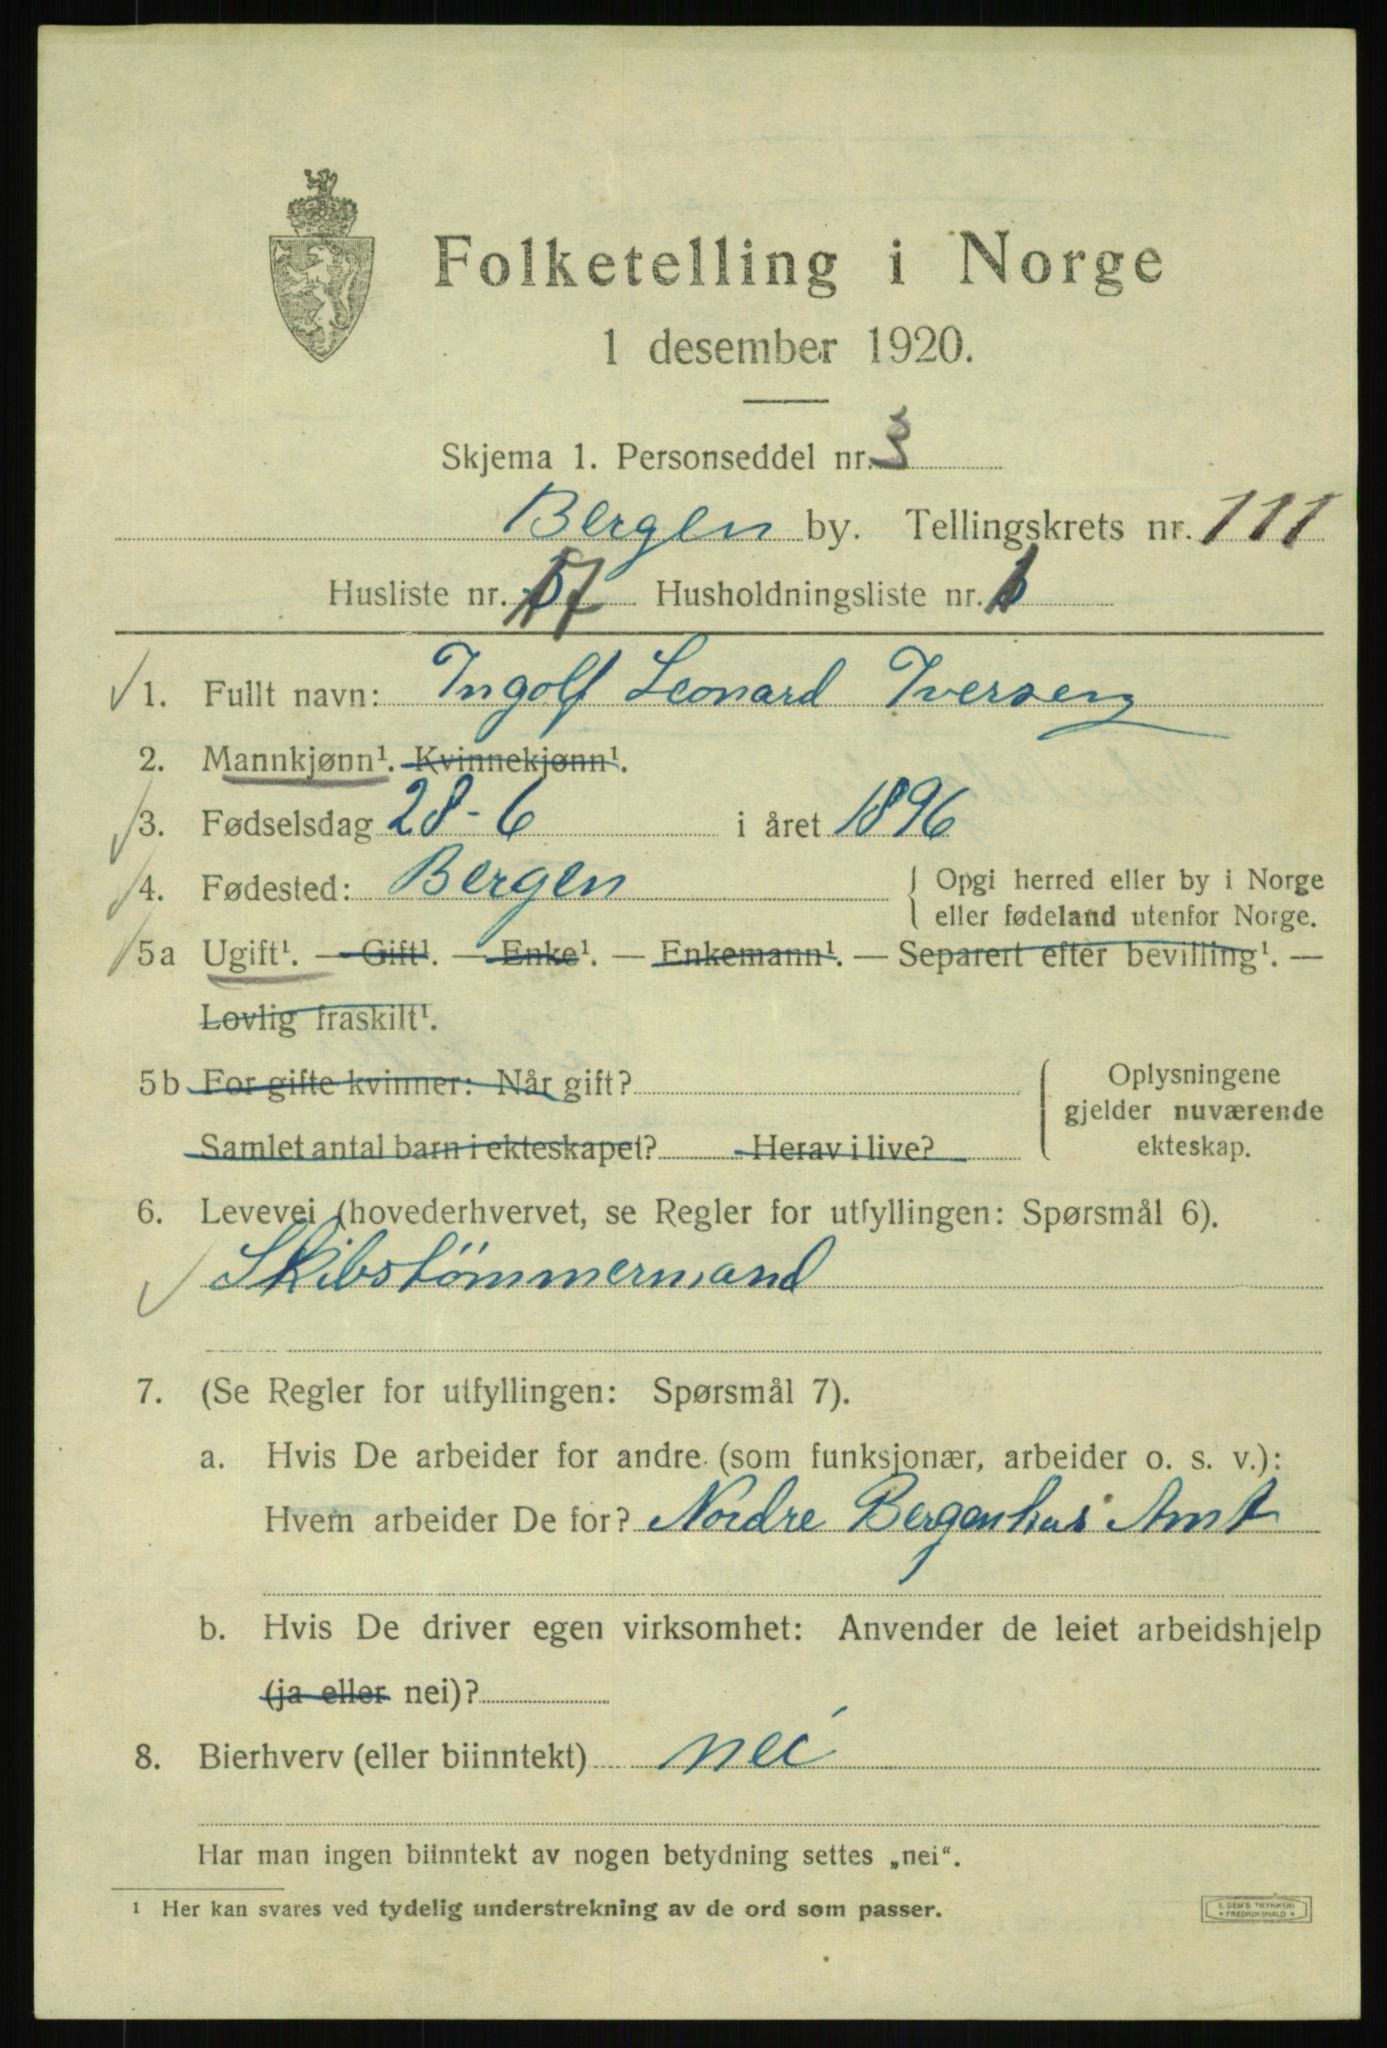 Folketelling i Norge
1 desember 1920.
Skjema 1. Personseddel nr. 3
Bergen by. Tellingskrets nr. 111
Husliste nr. 17 Husholdningsliste nr. 1
1. Fullt navn: Ingolf Leonard Iversen
2. Mannkjønn¹. Kvinnekjønn¹.
3. Fødselsdag 28-6 i året 1896
4. Fødested: Bergen { Opgi herred eller by i Norge
eller fødeland utenfor Norge.
5a Ugift¹. — Gift¹. — Enke¹. — Enkemann¹. — Separert efter bevilling¹. —
Lovlig fraskilt¹.
5b For gifte kvinner: Når gift? { Oplysningene
gjelder nuværende
Samlet antal barn i ekteskapet? Herav i live? ekteskap.
6. Levevei (hovederhvervet, se Regler for utfyllingen: Spørsmål 6).
Skibstömmermand
7. (Se Regler for utfyllingen: Spørsmål 7).
a. Hvis De arbeider for andre (som funksjonær, arbeider o. s. v.):
Hvem arbeider De for? Nordre Bergenhus Amt
b. Hvis De driver egen virksomhet: Anvender de leiet arbeidshjelp
(ja eller nei)?
8. Bierhverv (eller biinntekt) nei
Har man ingen biinntekt av nogen betydning settes „nei“.
¹ Her kan svares ved tydelig understrekning av de ord som passer.
E. SEM'S TRYKKERI
* FREDRIKSHALD *